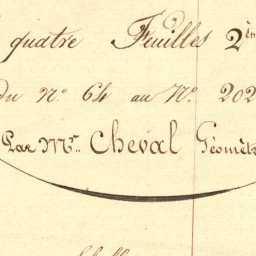 quatre Feuilles 2èm
du N.º 64 au N.º 202
Par Mr. Cheval Géomèt